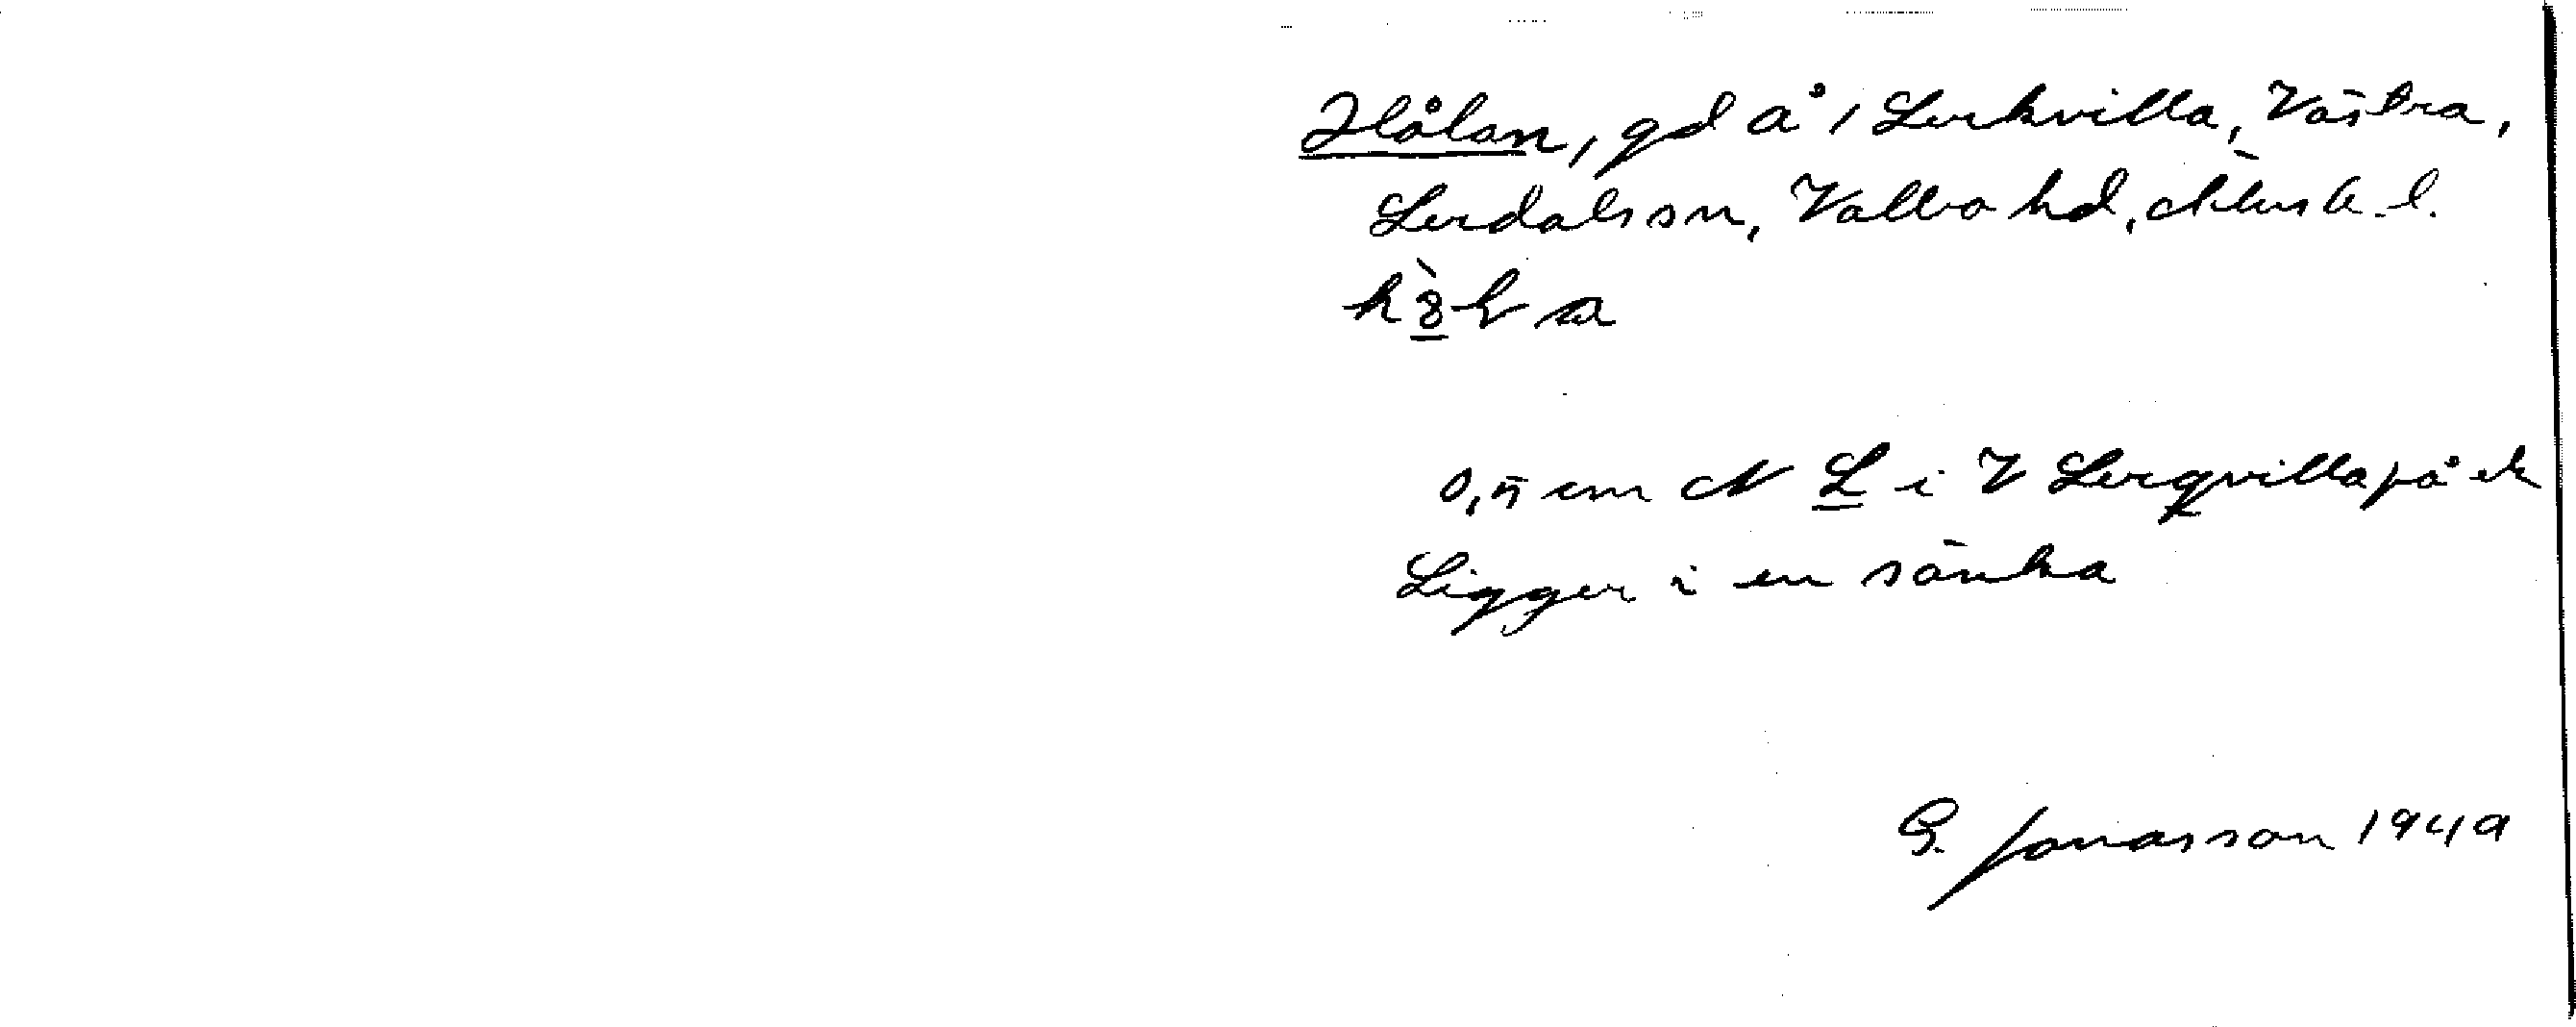 Hålan, gd å 1 Lerkvilla, Västra,
Lerdals sn, Valbo hd, Älvsb. l.
0,5 cm N L i V Lerqvilla på ek
Ligger i en sänka
G. Jonasson 1949